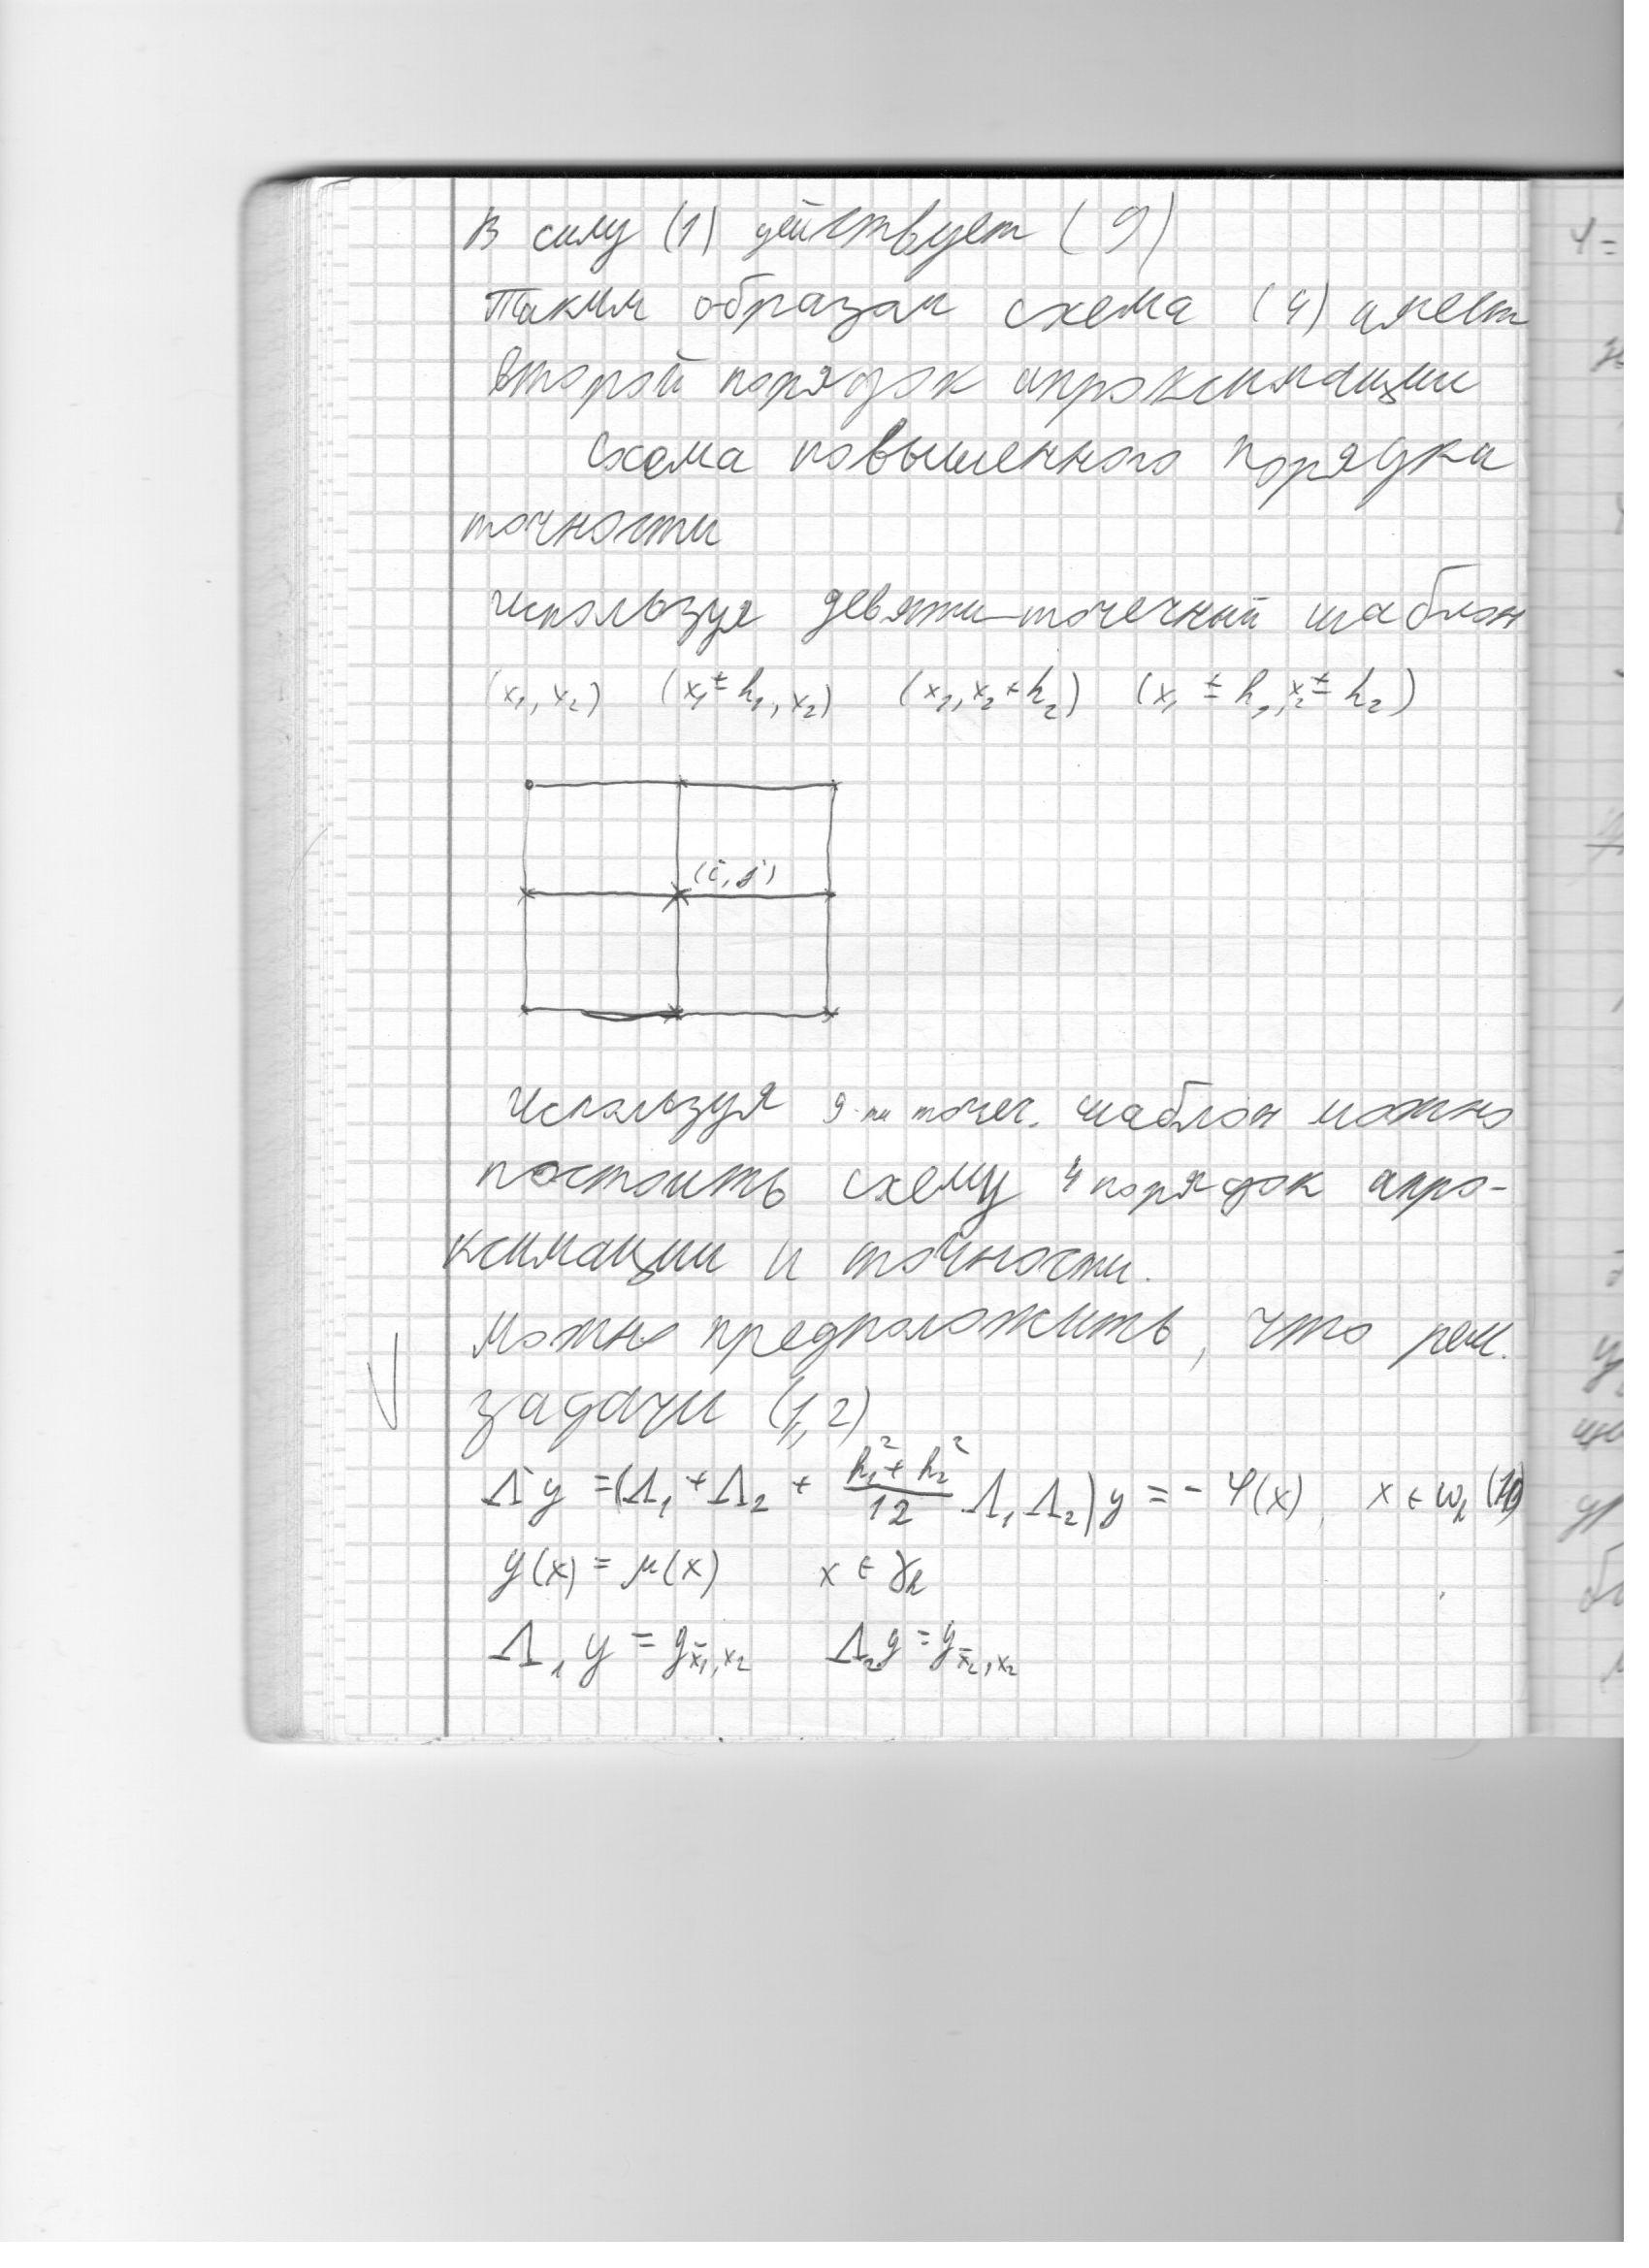 В силу (1) действует (9)
Таким образом схема (4) имеет
второй порядок апроксимации
Схема повышенного порядка
точности
используя девяти-точечный шаблон
(x₁, x₂) (x₁ ± h₁, x₂) (x₁, x₂ + h₂) (x₁ ± h₁, x₂ ± h₂)
(i, j)
Используя 9-ти точеч. шаблон можно
постоить схему 4 порядок апро-
ксимации и точности.
Можно предположить, что реш.
задачи (1,2)
Λ y = (Λ₁ + Λ₂ + (h₁² + h₂²)/12 Λ₁ Λ₂) y = - φ(x), x ∈ ωₕ (10)
y(x) = μ(x) x ∈ γₕ
Λ₁ y = y x̄₁, x₂ Λ₂ y = y x̄₂, x₂